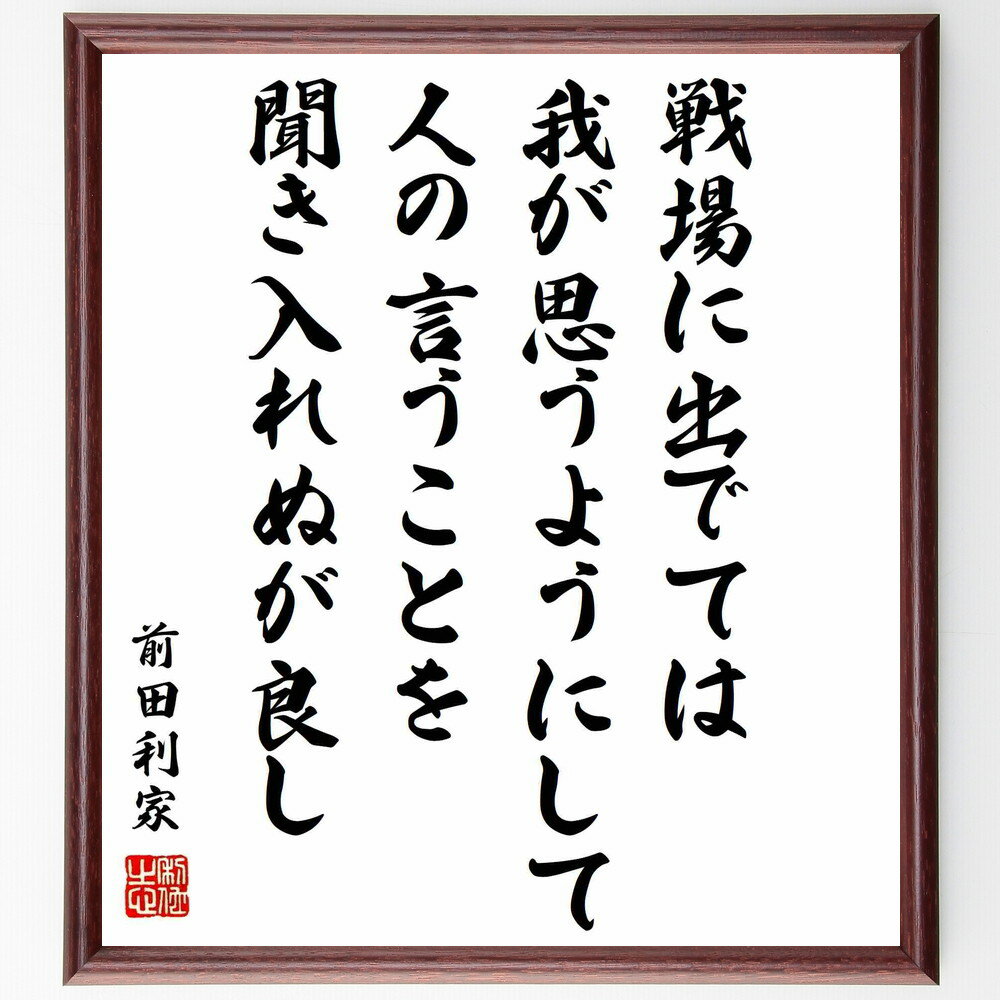 戦場に出でては
我が思うようにして
人の言うことを
聞き入れぬが良し
前田利家